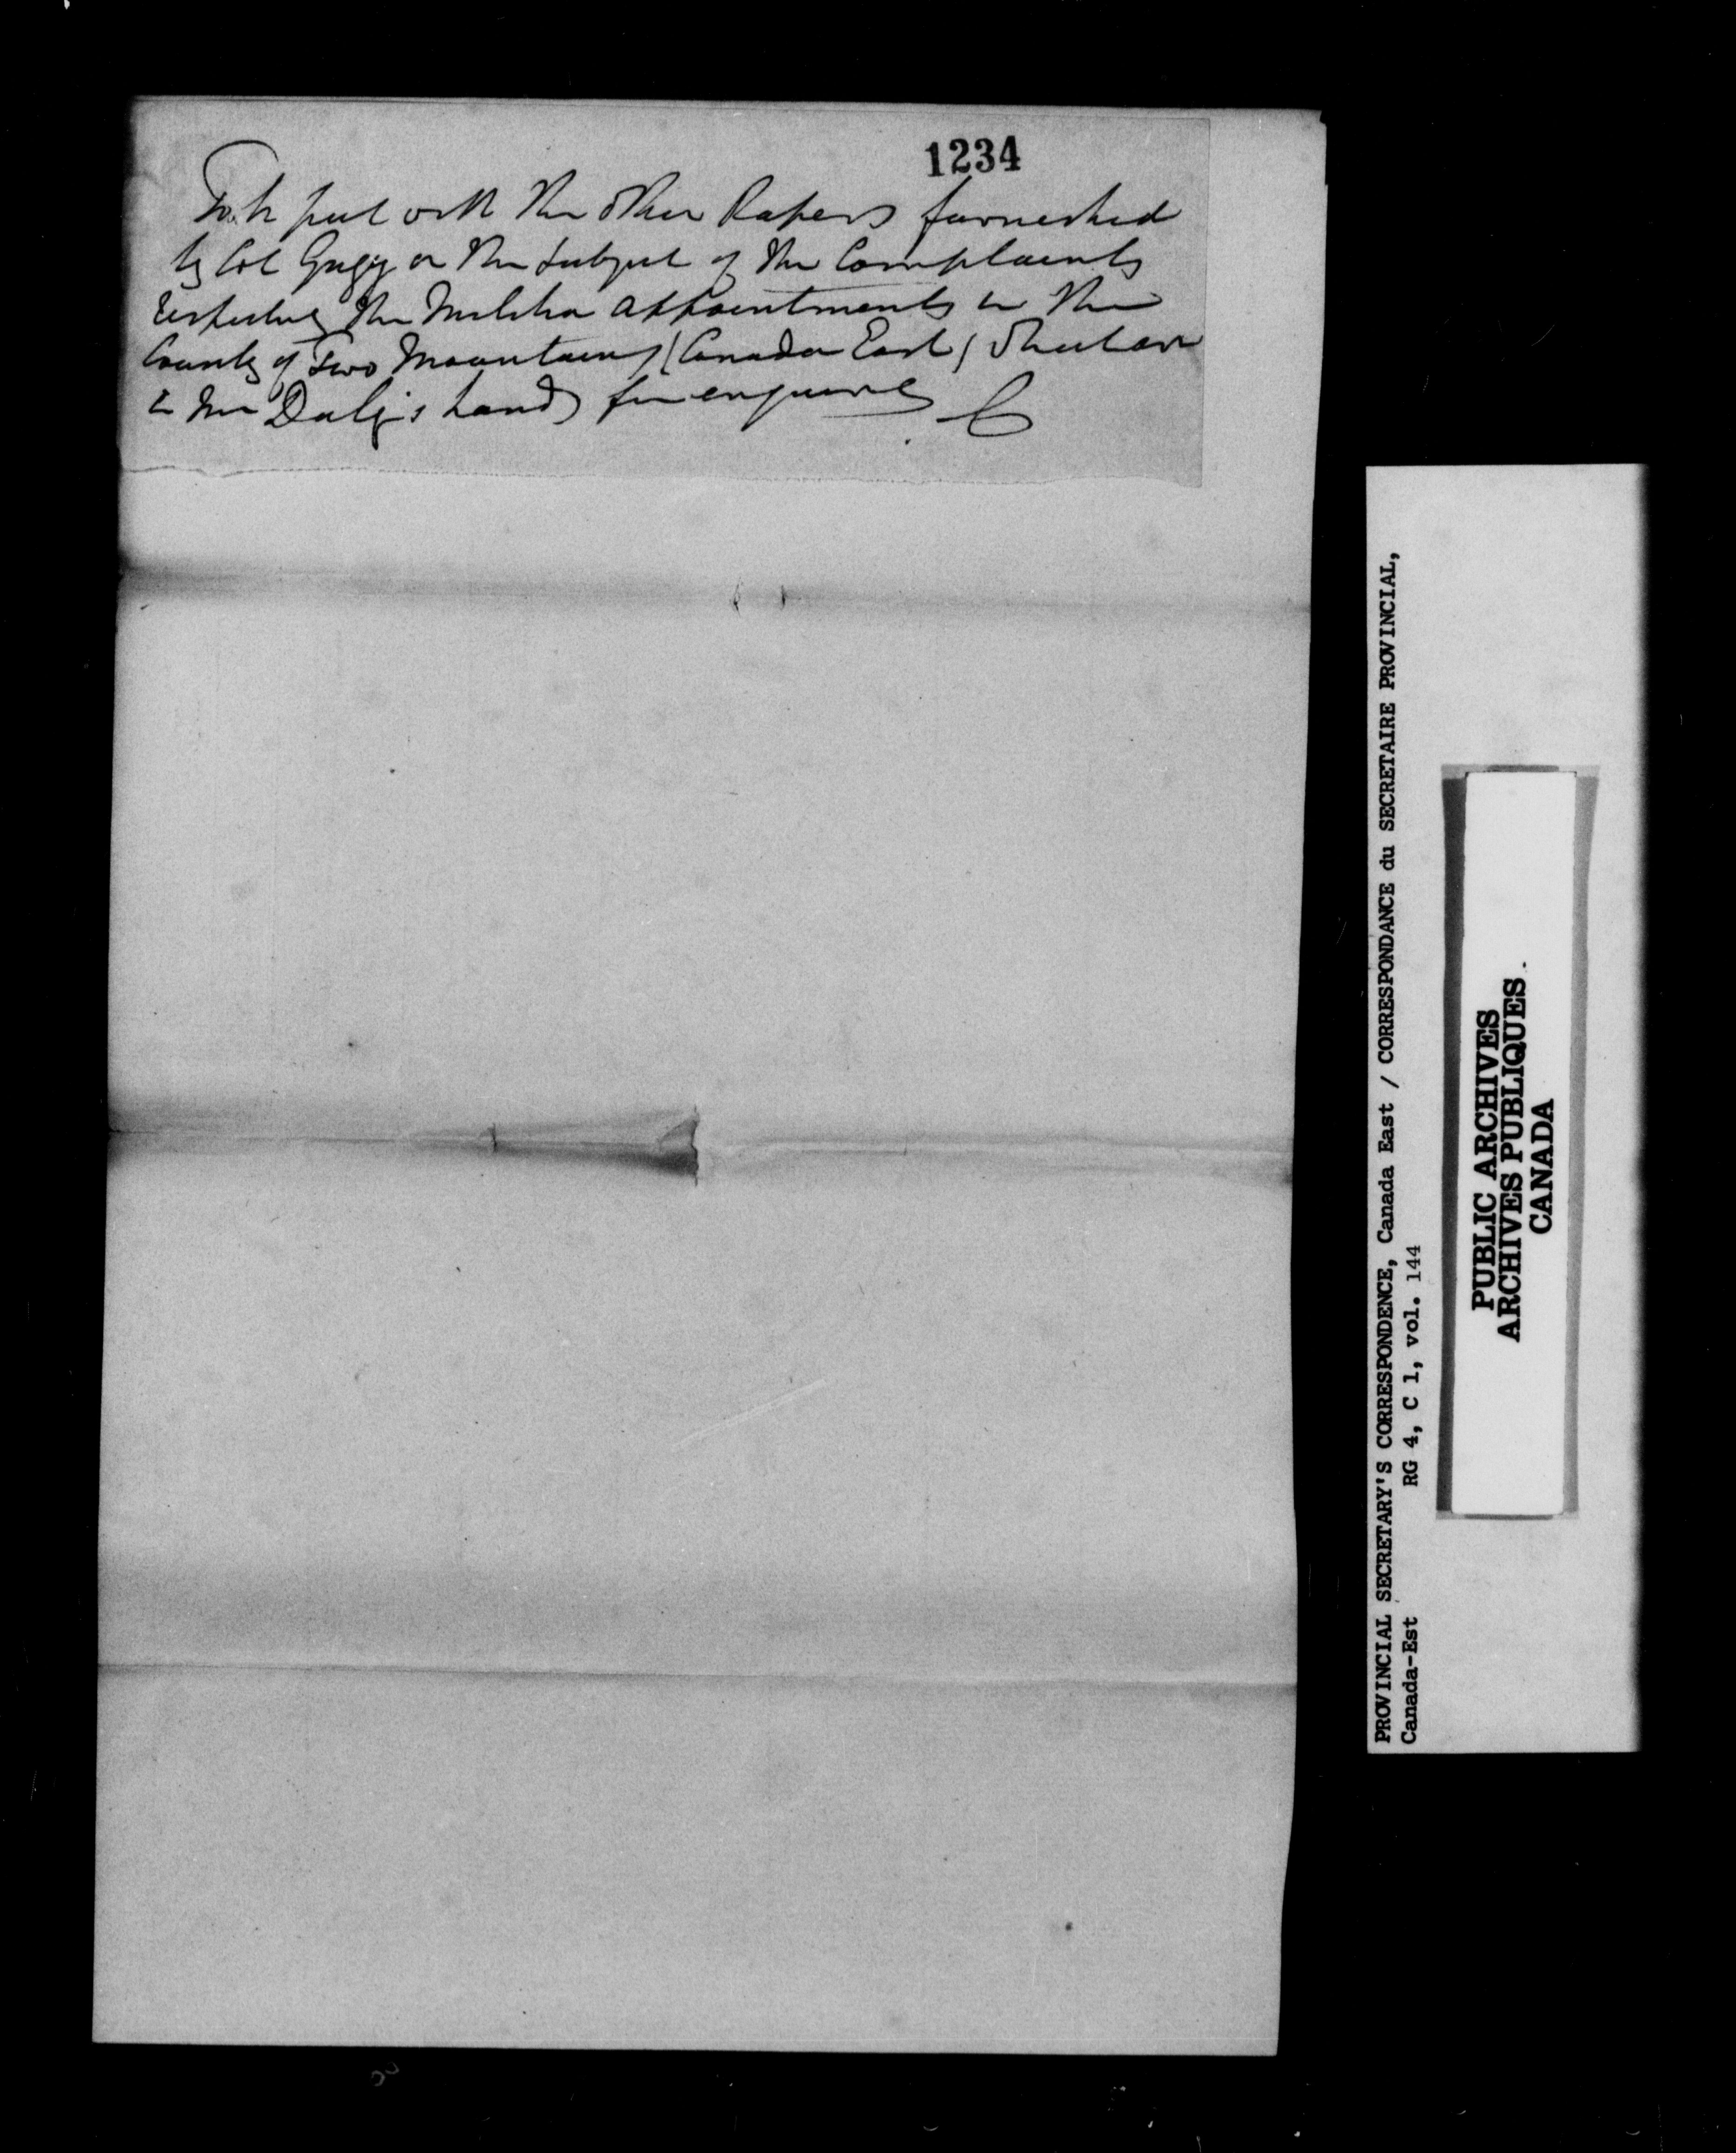 1234
To be put with the other Papers furnished
by Col Gugy on the Subject of the Complaints
respecting the Militia appointments in the
County of Two Mountains (Canada East) that are
in Mr Daly's hands for enquiry
PROVINCIAL SECRETARY'S CORRESPONDENCE, Canada East / CORRESPONDANCE du SECRETAIRE PROVINCIAL,
Canada-Est RG 4, C 1, vol. 144
PUBLIC ARCHIVES
ARCHIVES PUBLIQUES
CANADA